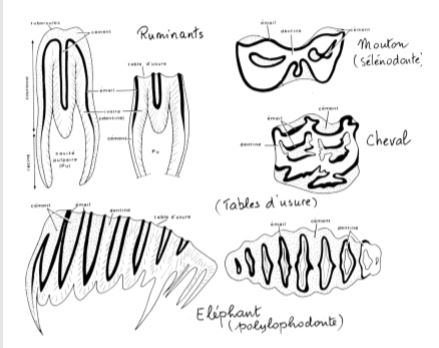 tubercules
cément
Ruminants
table d'usure
émail
ivoire
(dentine)
cément
couronne
racine
cavité
pulpaire
(Pu)
Pu
émail
dentine
cément
Mouton
(sélénodonte)
cément
émail
dentine
Cheval
(Tables d'usure)
cément
émail
dentine
table d'usure
émail
cément
dentine
Eléphant
(polylophodonte)